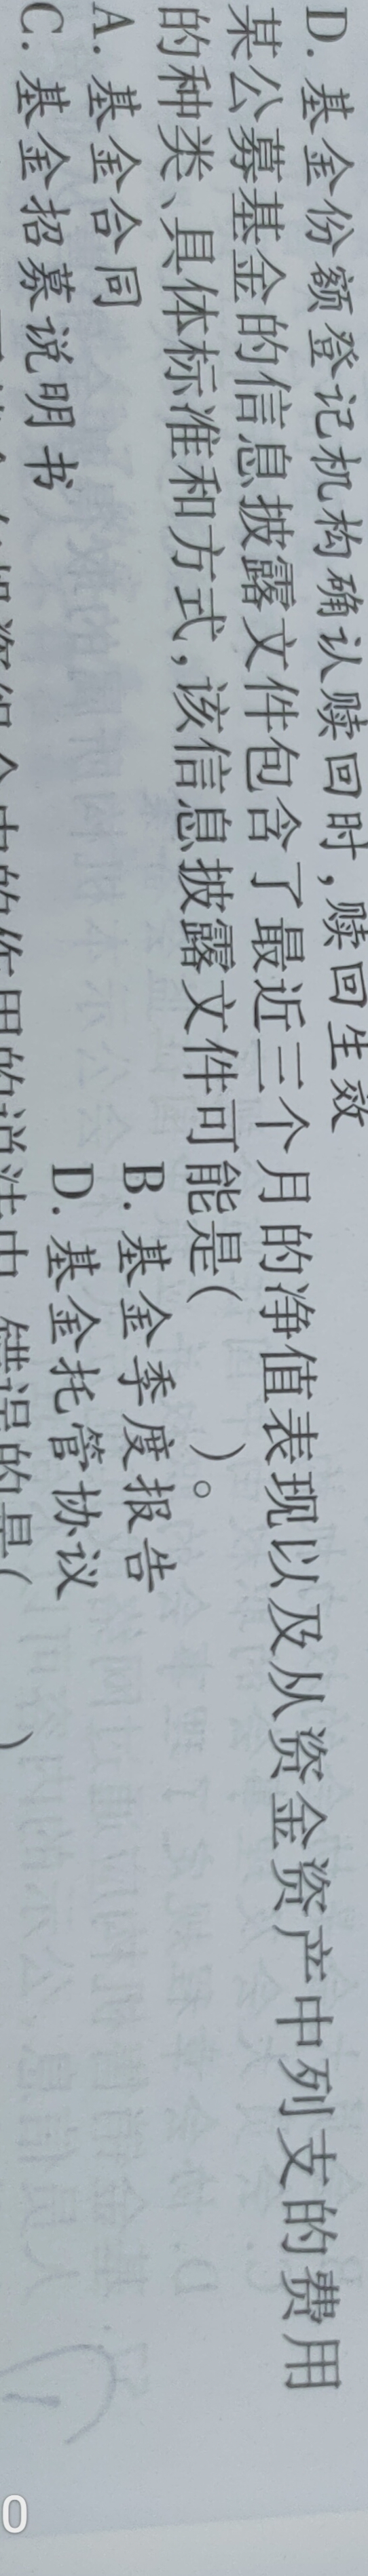 D. 基金份额登记机构确认赎回时,赎回生效
某公募基金的信息披露文件包含了最近三个月的净值表现以及从资金资产中列支的费用
的种类、具体标准和方式,该信息披露文件可能是( )。
A. 基金合同 B. 基金季度报告
C. 基金招募说明书 D. 基金托管协议
中的作用的说法中 错误的是( )
0